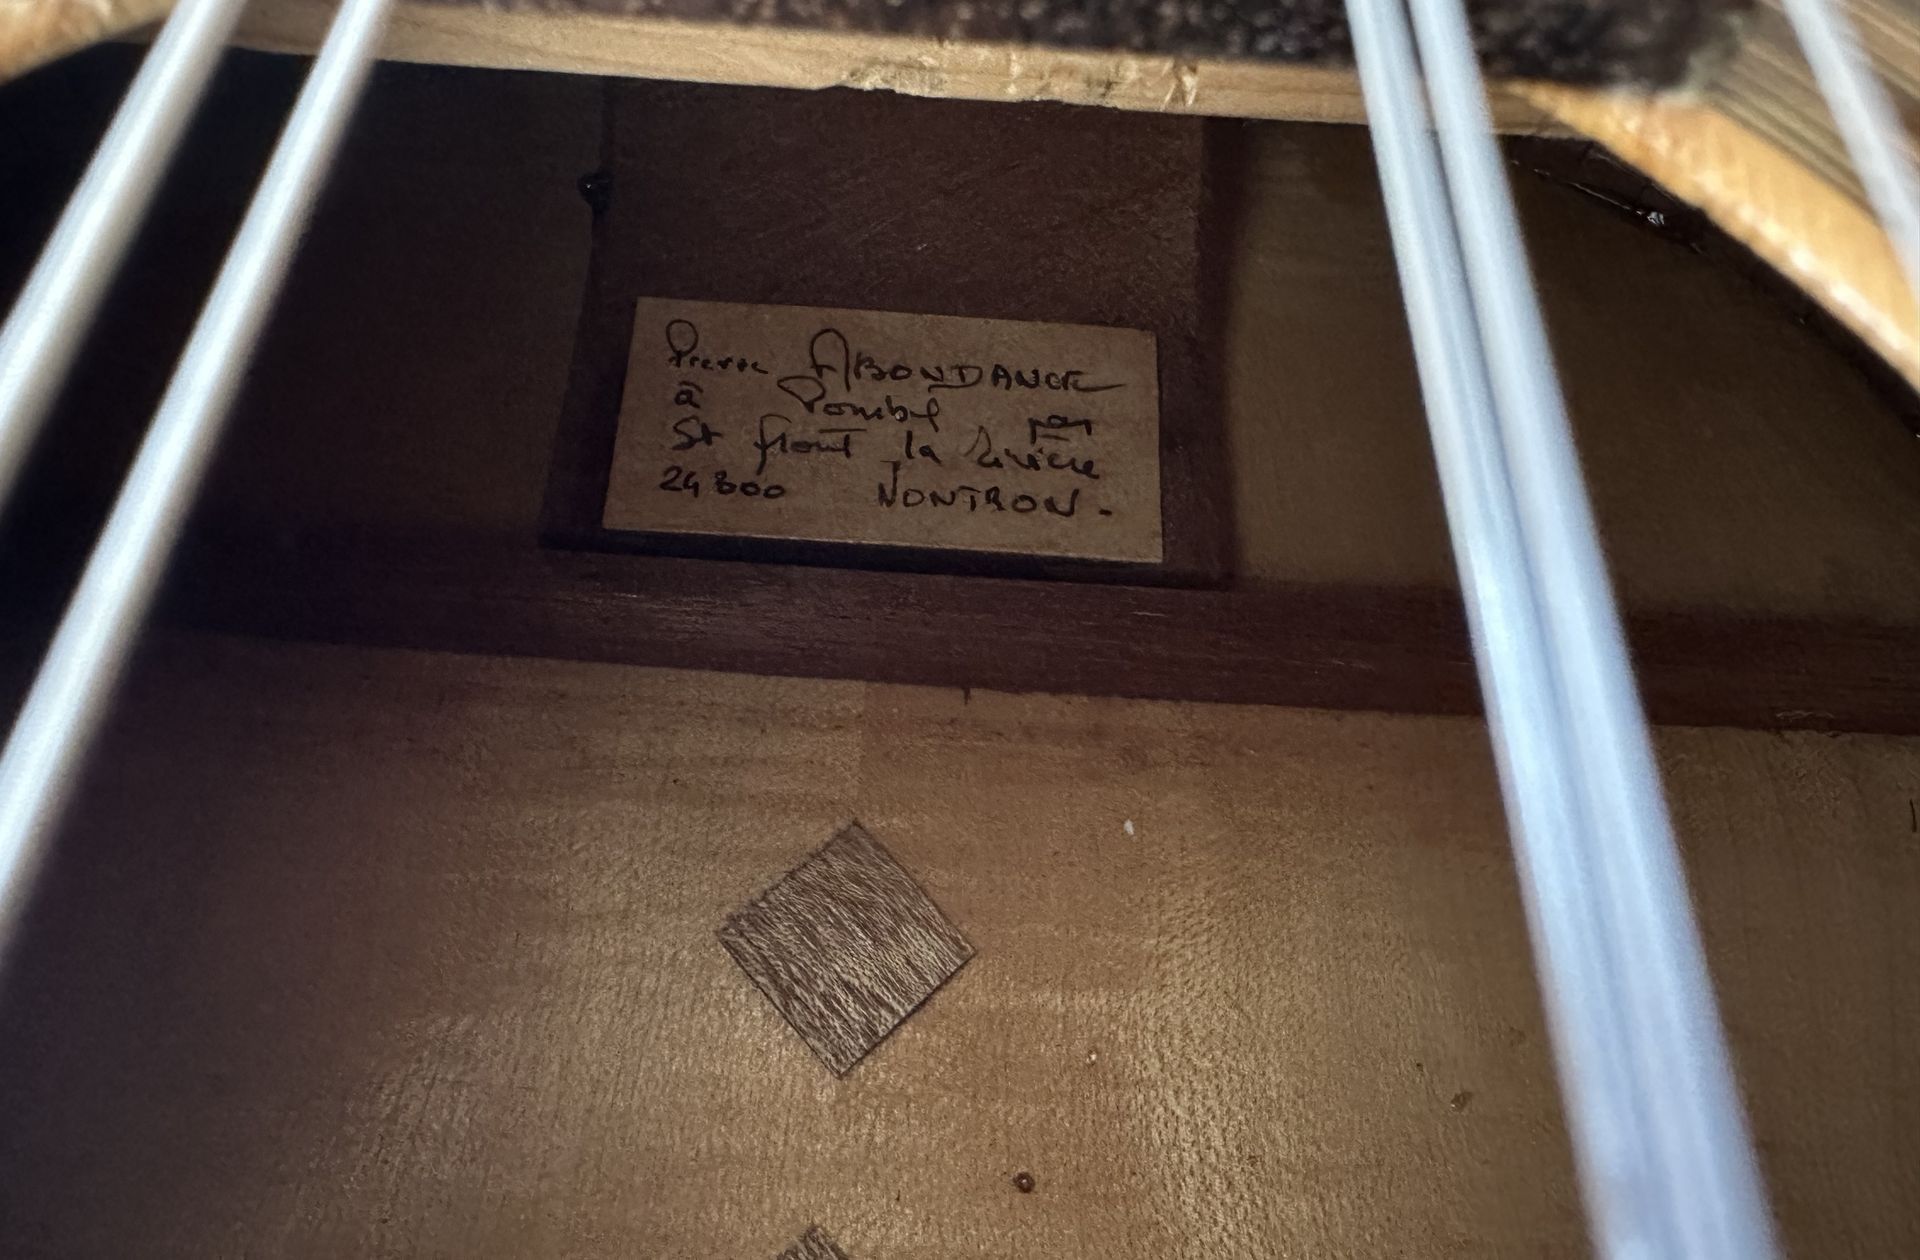 Pierre ABONDANCE
à Pombol par
St front la Rivière
24300 NONTRON.